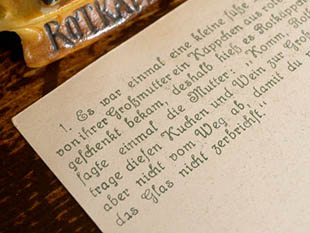 ROTKÄ
1. Es war einmal eine kleine süße
von ihrer Großmutter ein Käppchen aus rot
geschenkt bekam, deshalb hieß es Rotkäppch
sagte einmal die Mutter: "Komm, Rot
trage diesen Kuchen und Wein zur Groß
aber nicht vom Weg ab, damit du n
das Glas nicht zerbrichst."